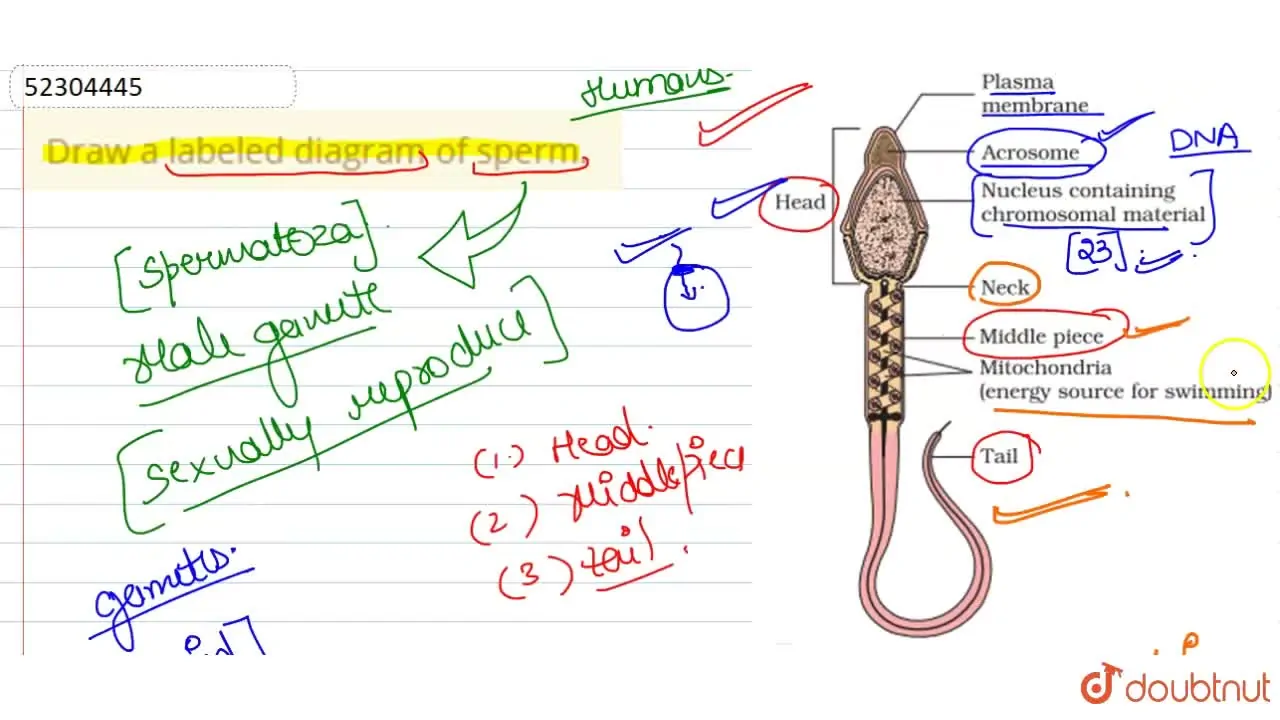 52304445
Draw a labeled diagram of sperm
Humans.
[spermatoza].
Male gamete
[sexually reproduce]
gametes.
(1.) Head.
(2) Middlepiece
(3) tail.
Head
Plasma
membrane
Acrosome
DNA
Nucleus containing
chromosomal material
[23]
Neck
Middle piece
Mitochondria
(energy source for swimming)
Tail
doubtnut